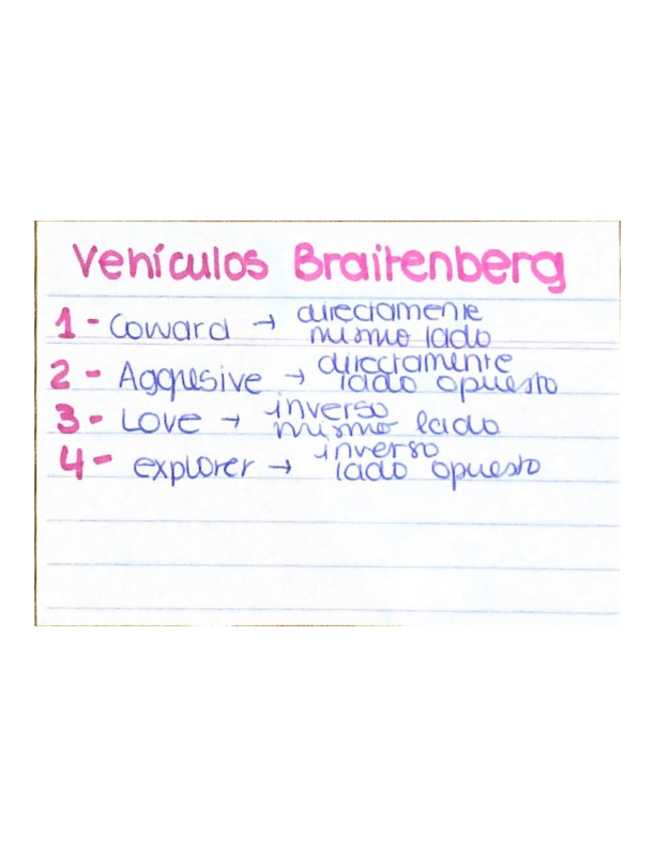 Vehículos Braitenberg
1 - Coward → directamente
mismo lado
2 - Aggresive → directamente
lado opuesto
3 - Love → inverso
mismo lado
4 - explorer → inverso
lado opuesto